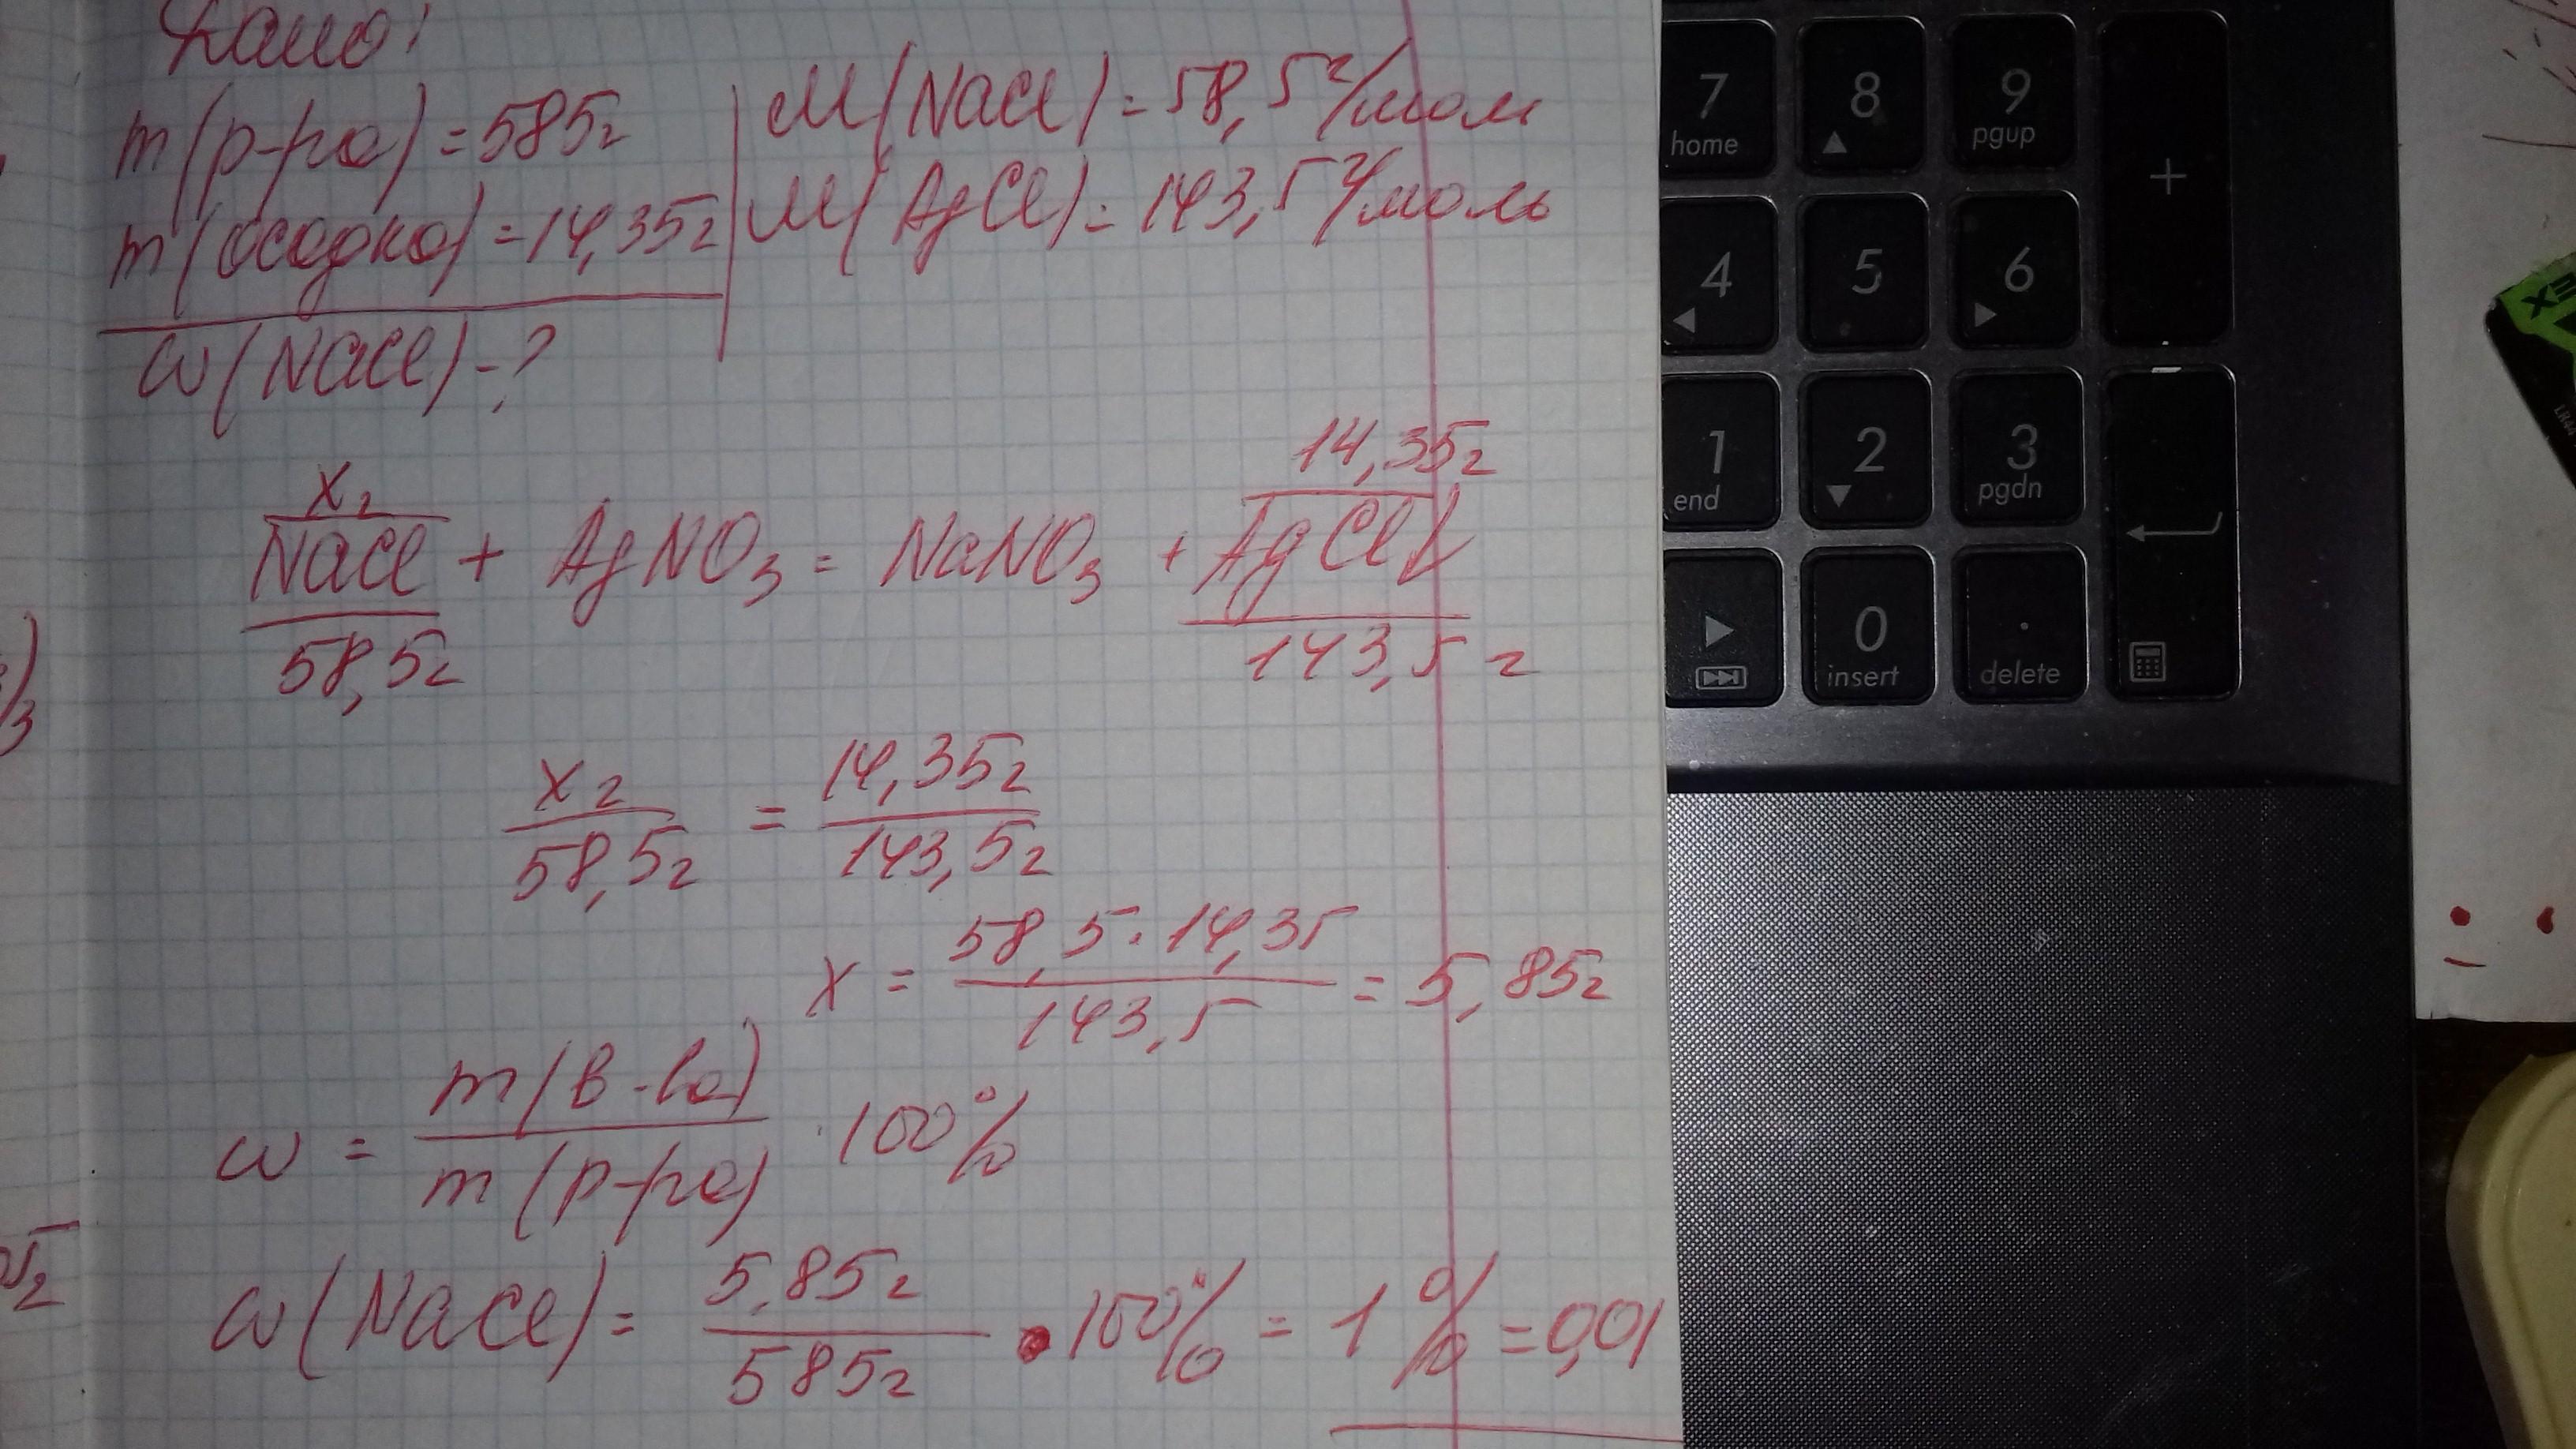 Дано:
m(р-ра) = 585г
m(осадка) = 14,35г
ω(NaCl) - ?
M(NaCl) = 58,5 г/моль
M(AgCl) = 143,5 г/моль
xг 14,35г
NaCl + AgNO3 = NaNO3 + AgCl↓
58,5г 143,5 г
xг / 58,5г = 14,35г / 143,5г
x = 58,5 · 14,35 / 143,5 = 5,85г
ω = m(в-ва) / m(р-ра) · 100%
ω(NaCl) = 5,85г / 585г · 100% = 1% = 0,01
7 home
8
9 pgup
+
4
5
6
1 end
2
3 pgdn
0 insert
. delete